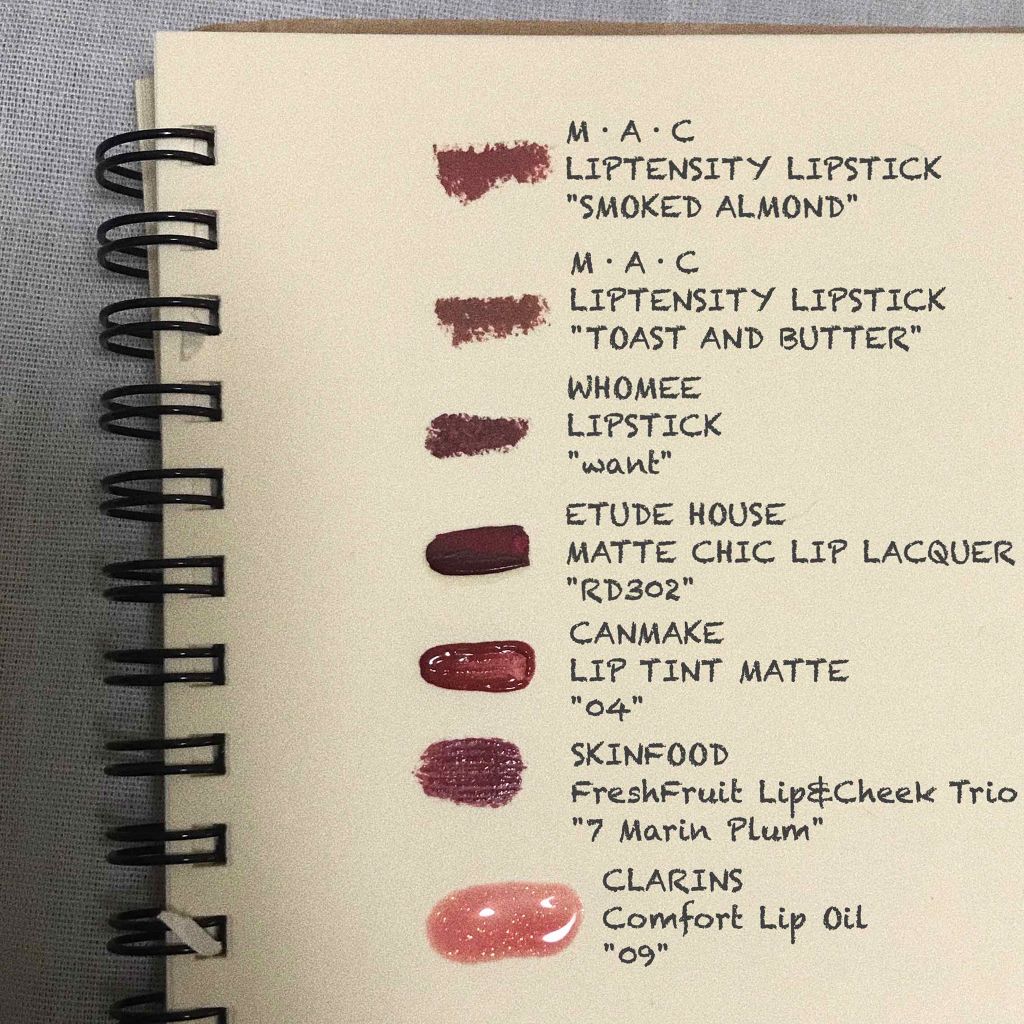 M・A・C
LIPTENSITY LIPSTICK
"SMOKED ALMOND"
M・A・C
LIPTENSITY LIPSTICK
"TOAST AND BUTTER"
WHOMEE
LIPSTICK
"want"
ETUDE HOUSE
MATTE CHIC LIP LACQUER
"RD302"
CANMAKE
LIP TINT MATTE
"04"
SKINFOOD
FreshFruit Lip&Cheek Trio
"7 Marin Plum"
CLARINS
Comfort Lip Oil
"09"